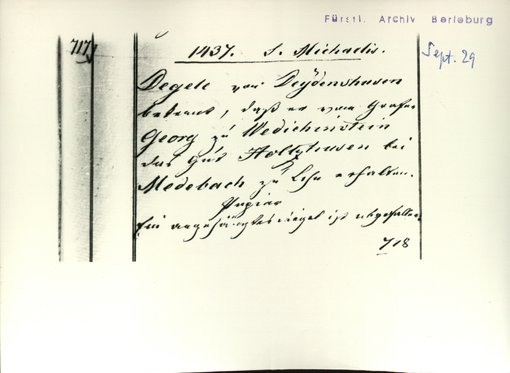 Fürstl. Archiv Berleburg
717
1437. S. Michaelis.
Sept. 29
Degele von Deydenshusen
bekennt, daß er vom Grafen
Georg zu Wedichenstein
das Gut Holtzhusen bei
Medebach zu Lehn erhalten.
Papier
Ein angehängtes Siegel ist abgefallen
718